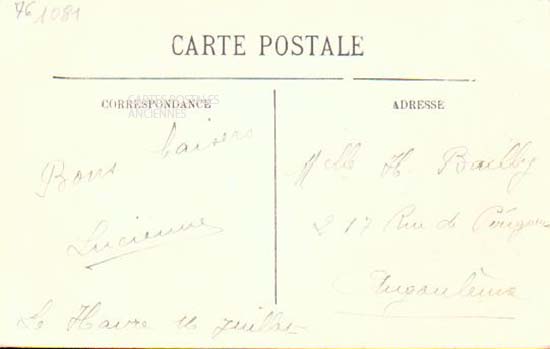 76 1081
CARTE POSTALE
CORRESPONDANCE
CARTES POSTALES
ANCIENNES
Bons baisers
Lucienne
Le Havre 16 juillet
ADRESSE
Mlle H. Bailly
217 Rue de Périgueux
Angoulême